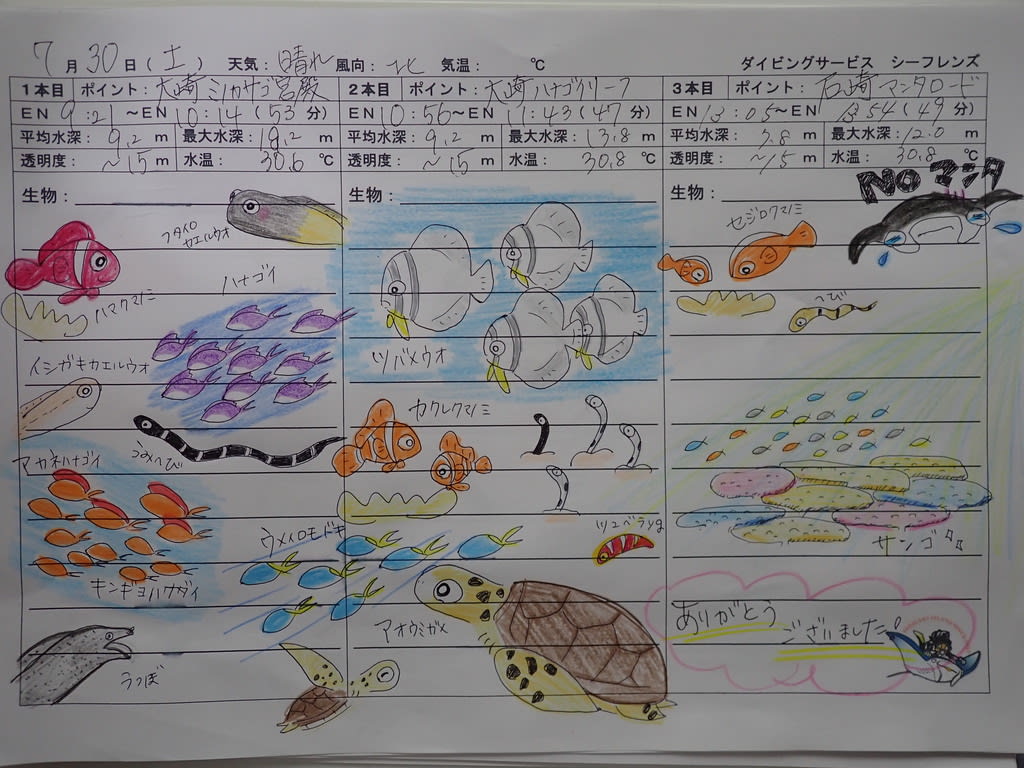 7月30日(土) 天気：晴れ 風向：北 気温： ℃ ダイビングサービス シーフレンズ
1本目 ポイント：大崎ミカサゴ宮殿 2本目 ポイント：大崎ハナゴイリーフ 3本目 ポイント：石崎マンタロード
EN 9:21～EN 10:14(53分) EN 10:56～EN 11:43(47分) EN 13:05～EN 13:54(49分)
平均水深：9.2m 最大水深：19.2m 平均水深：9.2m 最大水深：13.8m 平均水深：7.8m 最大水深：12.0m
透明度：～15m 水温：30.6℃ 透明度：～15m 水温：30.8℃ 透明度：～15m 水温：30.8℃
生物： 生物： 生物：
NOマンタ
フタイロ
カエルウオ
セジロクマノミ
ハナゴイ
ハマクマノミ
へび
イシガキカエルウオ
ツバメウオ
カクレクマノミ
うみへび
アカネハナゴイ
ウメイロモドキ
サンゴ
キンギョハナダイ
アオウミガメ
ありがとう
ございました!
うつぼ